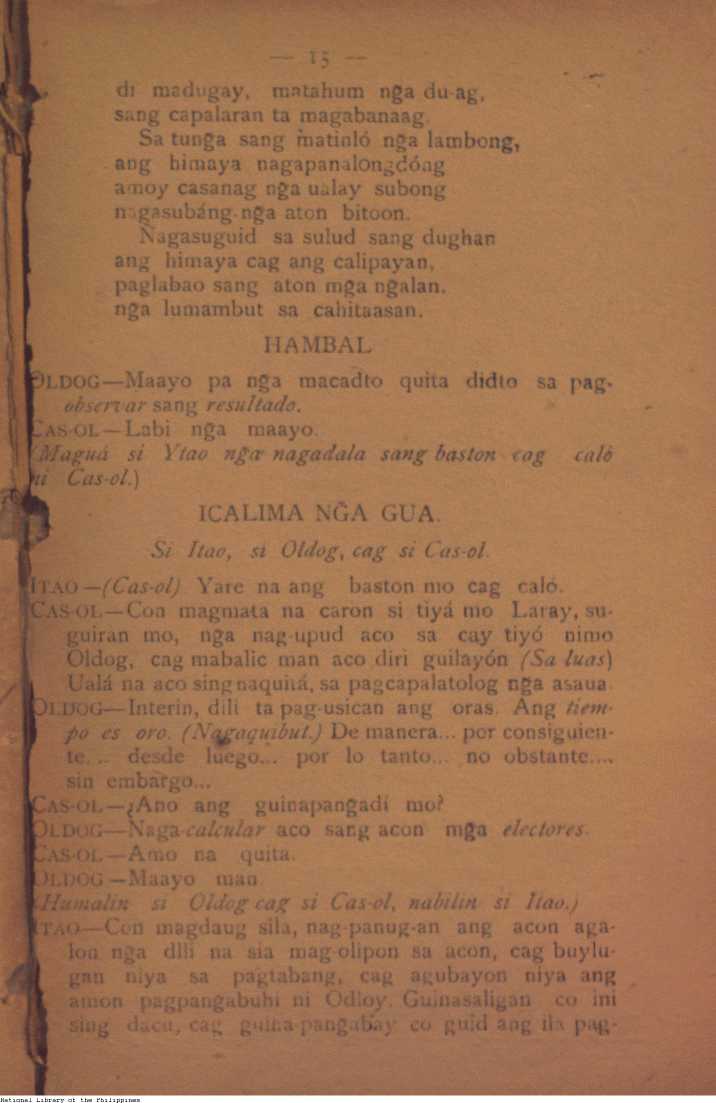 — 15 —
di madugay, matahum ng̃a du-ag,
sang capalaran ta magabanaag.
Sa tung̃a sang matinló ng̃a lambong,
ang himaya nagapanalongdóng
amoy casanag ng̃a ualay subong
nagasubáng ng̃a aton bitoon.
Nagasuguid sa sulud sang dughan
ang himaya cag ang calipayan,
paglabao sang aton mg̃a ng̃alan.
ng̃a lumambut sa cahitaasan.
HAMBAL
OLDOG—Maayo pa ng̃a macadto quita didto sa pag-
observar sang resultado.
CAS-OL—Labi ng̃a maayo.
(Maguá si Ytao ng̃a nagadala sang baston cag caló
ni Cas-ol.)
ICALIMA NG̃A GUA.
Si Itao, si Oldog, cag si Cas-ol.
ITAO—(Cas-ol) Yare na ang baston mo cag caló.
CAS-OL—Con magmata na caron si tiyá mo Laray, su-
guiran mo, ng̃a nag-upud aco sa cay tiyó nimo
Oldog, cag mabalic man aco diri guilayón (Sa luas)
Ualá na aco sing naquitá, sa pagcapalatolog ng̃a asaua.
OLDOG—Interin, dili ta pag-usican ang oras. Ang tiem-
po es oro. (Nagaquibut.) De manera... por consiguien-
te... desde luego... por lo tanto... no obstante....
sin embargo...
CAS-OL—¿Ano ang guinapang̃adi mo?
OLDOG—Naga-calcular aco sang acon mg̃a electores.
CAS-OL—Amo na quita.
OLDOG—Maayo man.
(Humalin si Oldog cag si Cas-ol, nabilin si Itao.)
ITAO—Con magdaug sila, nag-panug-an ang acon aga-
lon ng̃a dili na sia mag-olipon sa acon, cag buylu-
gan niya sa pagtabang, cag agubayon niya ang
amon pagpang̃abuhi ni Odloy. Guinasaligan co ini
sing dacu, cag guina-pang̃abay co guid ang ila pag-
National Library of the Philippines